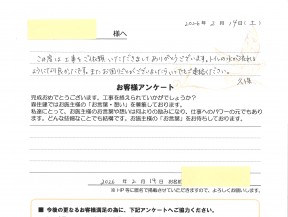 2026年2月19日(土)
様へ
この度は工事をご依頼いただきましてありがとうございます。トイレの水が流れる
ようになり良かったです。またお困りごとがございましたら、いつでもご連絡ください。
お客様アンケート
完成おめでとうございます。工事を終えられていかがでしょうか？
森住建では、お施主様の「お言葉・想い」を募集しております。
私達にとって、お施主様からの言葉や想いは何よりの励みになり、仕事へのパワーの元でもあり
ます。どんな些細なことでも結構です。お施主様の「お言葉」をお待ちしております。
2022年2月19日 お名前
※HP等に匿名で掲載させていただきますので、よろしくお願いします。
■ 今後の更なるお客様満足の為に、下記アンケートへご協力ください。